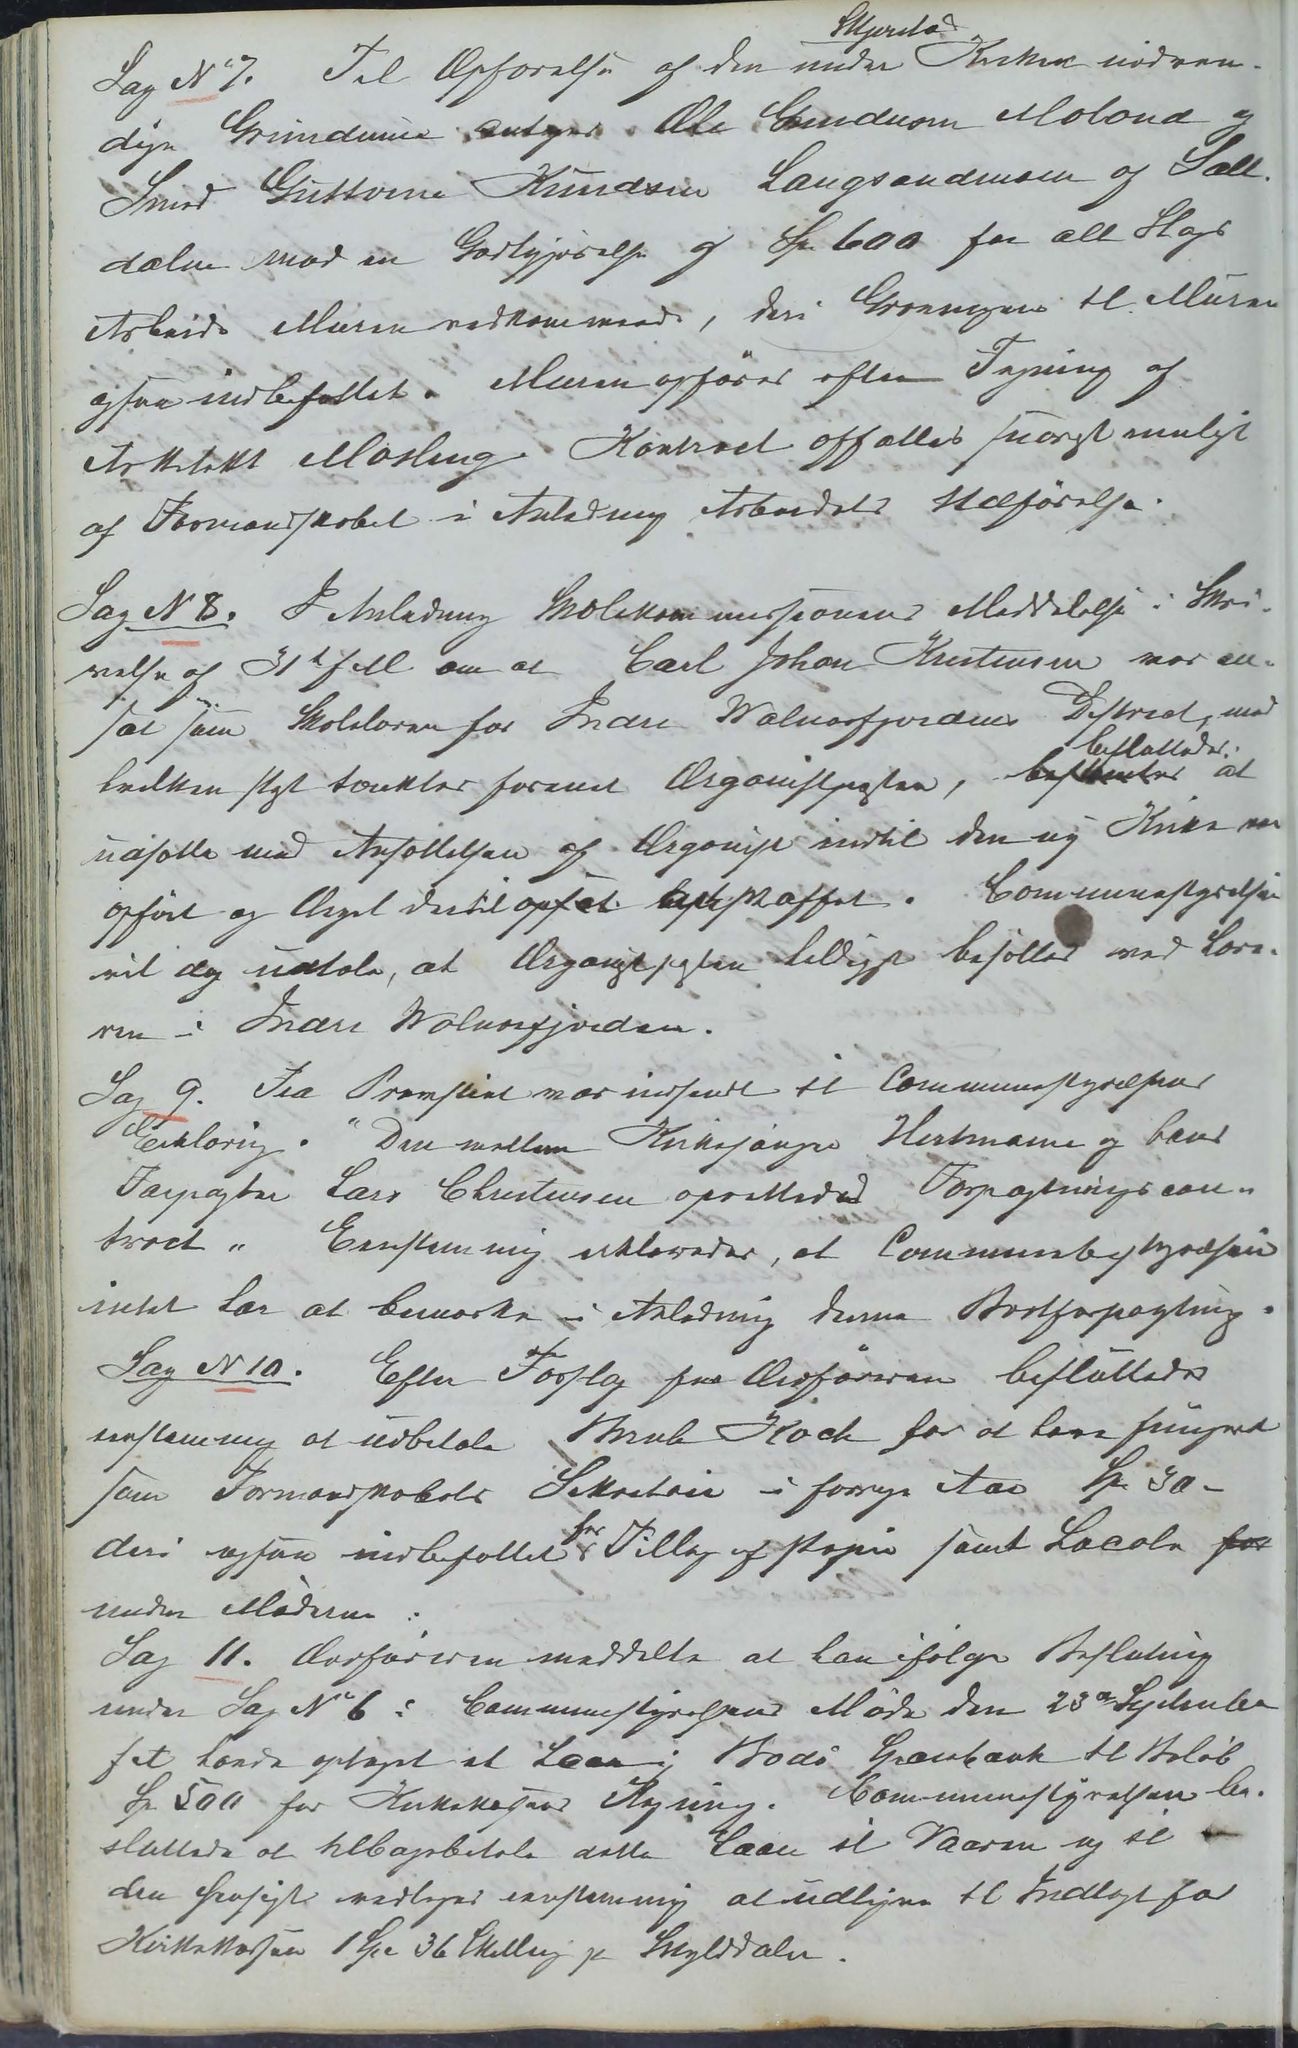 Skjerstad
Sag No 7. Til Opførelse af den under Kirken nødven-
dige Grundmuur antages Ole Moland og
Smed Guttorm Knudsen Langsandmoen af Salt-
dalen mod en Godtgjørelse af Sp 600 for alt Slags
Arbeide Muren vedkommende, deri Gravningen til Muren
ogsaa indbefattet. Muren opføres efter Tegning af
Arkitekt Mosling. Kontract affattes snarest muligt
af Formandskabet i Anledning Arbeidets Udførelse.
Sag N 8. I Anledning Skolekommissionens Meddelelse i Skri-
velse af 31te f M om at Carl Johan Kristensen var an-
sat som Skolelærer for Indre Walnesfjordens District, med
besluttedes:
hvilken Post tænktes forenet Organistposten, bestemtes at
udsætte med Ansættelsen af Organist indtil den ny Kirke var
opført og Orgel dertil opsat anskaffet. Communestyrelsen
vil dog udtale, at Organistposten heldigst besættes ved Lære-
ren i Indre Walnesfjorden.
Sag 9. Fra Provstiet var indsendt til Communestyrelsens
Erklæring. "Den mellem Kirkesanger Hertmann og hans
Forpagter Lars Christensen oprettedes Forpagtningscon-
tract" Eenstemmig erklæredes, at Communebestyrelsen
intet har at bemærke i Anledning denne Bortforpagtning.
Sag N 10. Efter Forslag fra Ordføreren besluttedes
eenstemmig at udbetale Koch for at have fungeret
som Formandskabets Sekretair i forrige Aar Sp 30 -
for
deri ogsaa indbefattet Tillæg af Papir samt Locale for
under Møderne.
Sag 11. Ordføreren meddelte at han ifølge Beslutning
under Sag No 6 i Communestyrelsens Møde den 23de September
f A havde optaget et Laan i Bodø Sparebank til Beløb
Sp 500 for Kirkekassens Regning. Communestyrelsen be-
sluttede at tilbagebetale dette Laan til Vaaren og til
den Hensigt vedtoges eenstemmig at udligne til Indtægt for
Kirkekassen 1 Sp 36 Skilling pr Skylddaler.